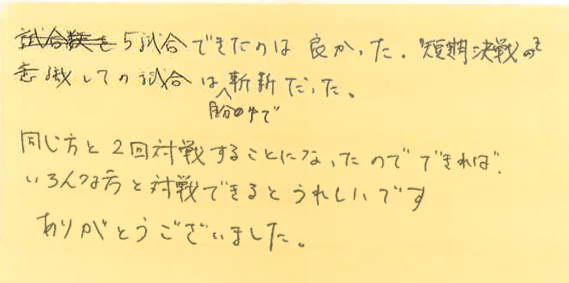 5試合できたのは良かった。短期決戦のを
意識しての試合は自分の中で斬新だった。
同じ方と2回対戦することになったのでできれば、
いろんな方と対戦できるとうれしいです
ありがとうございました。